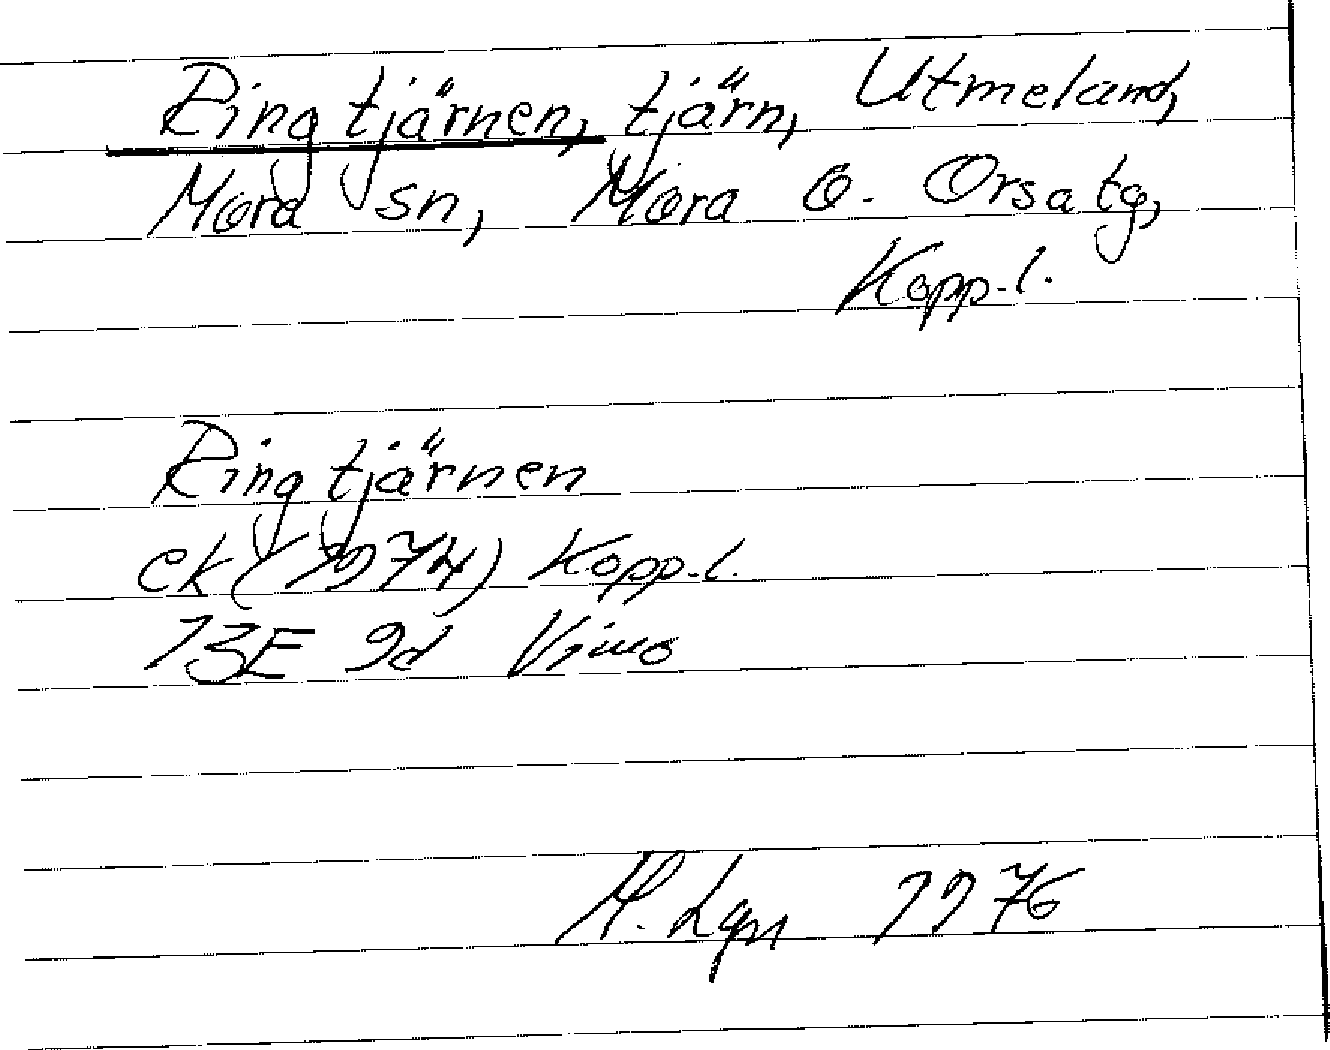 Ringtjärnen, tjärn, Utmeland,
Mora sn, Mora o. Orsa tg,
Kopp.l.
Ringtjärnen
ek (1974) Kopp.l.
13E 9d Vimo
1976